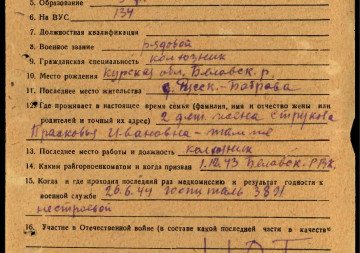 5. Образование
6. На ВУС 134
7. Должностная квалификация
8. Военное звание рядовой
9. Гражданская специальность колхозник
10. Место рождения Курская обл. Беловск. р.
11. Последнее место жительства д. Песк-Петрова
12. Где проживает в настоящее время семья (фамилия, имя и отчество жены или
родителей и точный их адрес) 2 дет. жена Струкова
Прасковья Ивановна - там же
13. Последнее место работы и должность колхозник
14. Каким райгорвоенкоматом и когда призван 1.10.43 Беловск. РВК
15. Когда и где проходил последний раз медкомиссию и результат годности к
военной службе 26.6.44 госпиталь 3891
нестроевой
16. Участие в Отечественной войне (в составе какой последней части в качестве